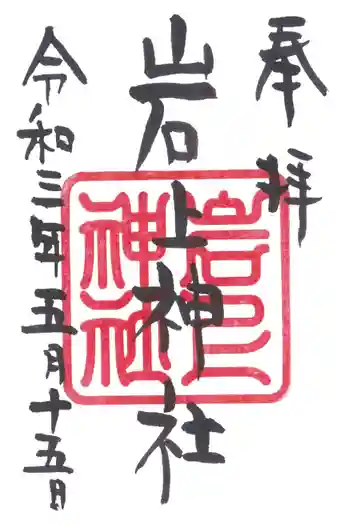 奉拝
岩上神社
岩上神社
令和三年五月十五日